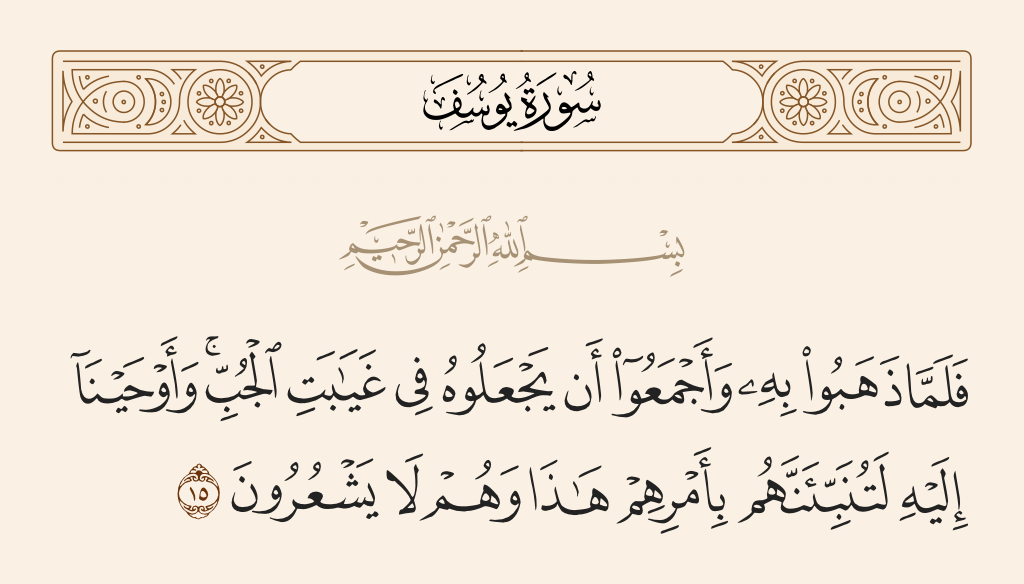 سُورَةُ يُوسُفَ
بِسْمِ ٱللَّهِ ٱلرَّحْمَٰنِ ٱلرَّحِيمِ
فَلَمَّا ذَهَبُوا۟ بِهِۦ وَأَجْمَعُوٓا۟ أَن يَجْعَلُوهُ فِى غَيَٰبَتِ ٱلْجُبِّ ۚ وَأَوْحَيْنَآ
إِلَيْهِ لَتُنَبِّئَنَّهُم بِأَمْرِهِمْ هَٰذَا وَهُمْ لَا يَشْعُرُونَ ١٥